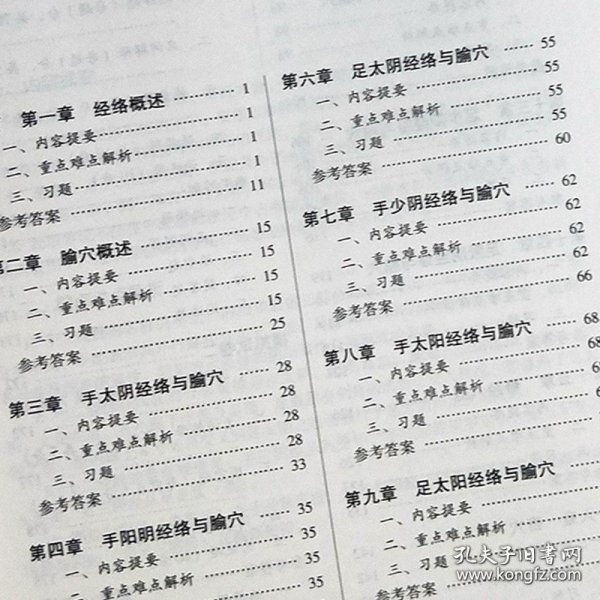 第一章 经络概述 1
一、内容提要 1
二、重点难点解析 1
三、习题 1
参考答案 11
第二章 腧穴概述 15
一、内容提要 15
二、重点难点解析 15
三、习题 15
参考答案 25
第三章 手太阴经络与腧穴 28
一、内容提要 28
二、重点难点解析 28
三、习题 28
参考答案 33
第四章 手阳明经络与腧穴 35
一、内容提要 35
二、重点难点解析 35
第六章 足太阴经络与腧穴 55
一、内容提要 55
二、重点难点解析 55
三、习题 55
参考答案 60
第七章 手少阴经络与腧穴 62
一、内容提要 62
二、重点难点解析 62
三、习题 62
参考答案 66
第八章 手太阳经络与腧穴 68
一、内容提要 68
二、重点难点解析
三、习题
参考答案
第九章 足太阳经络与腧穴
一、内容提要
二、重点难点解析
三、习题
参考答案
孔夫子旧书网
www.kongfz.com